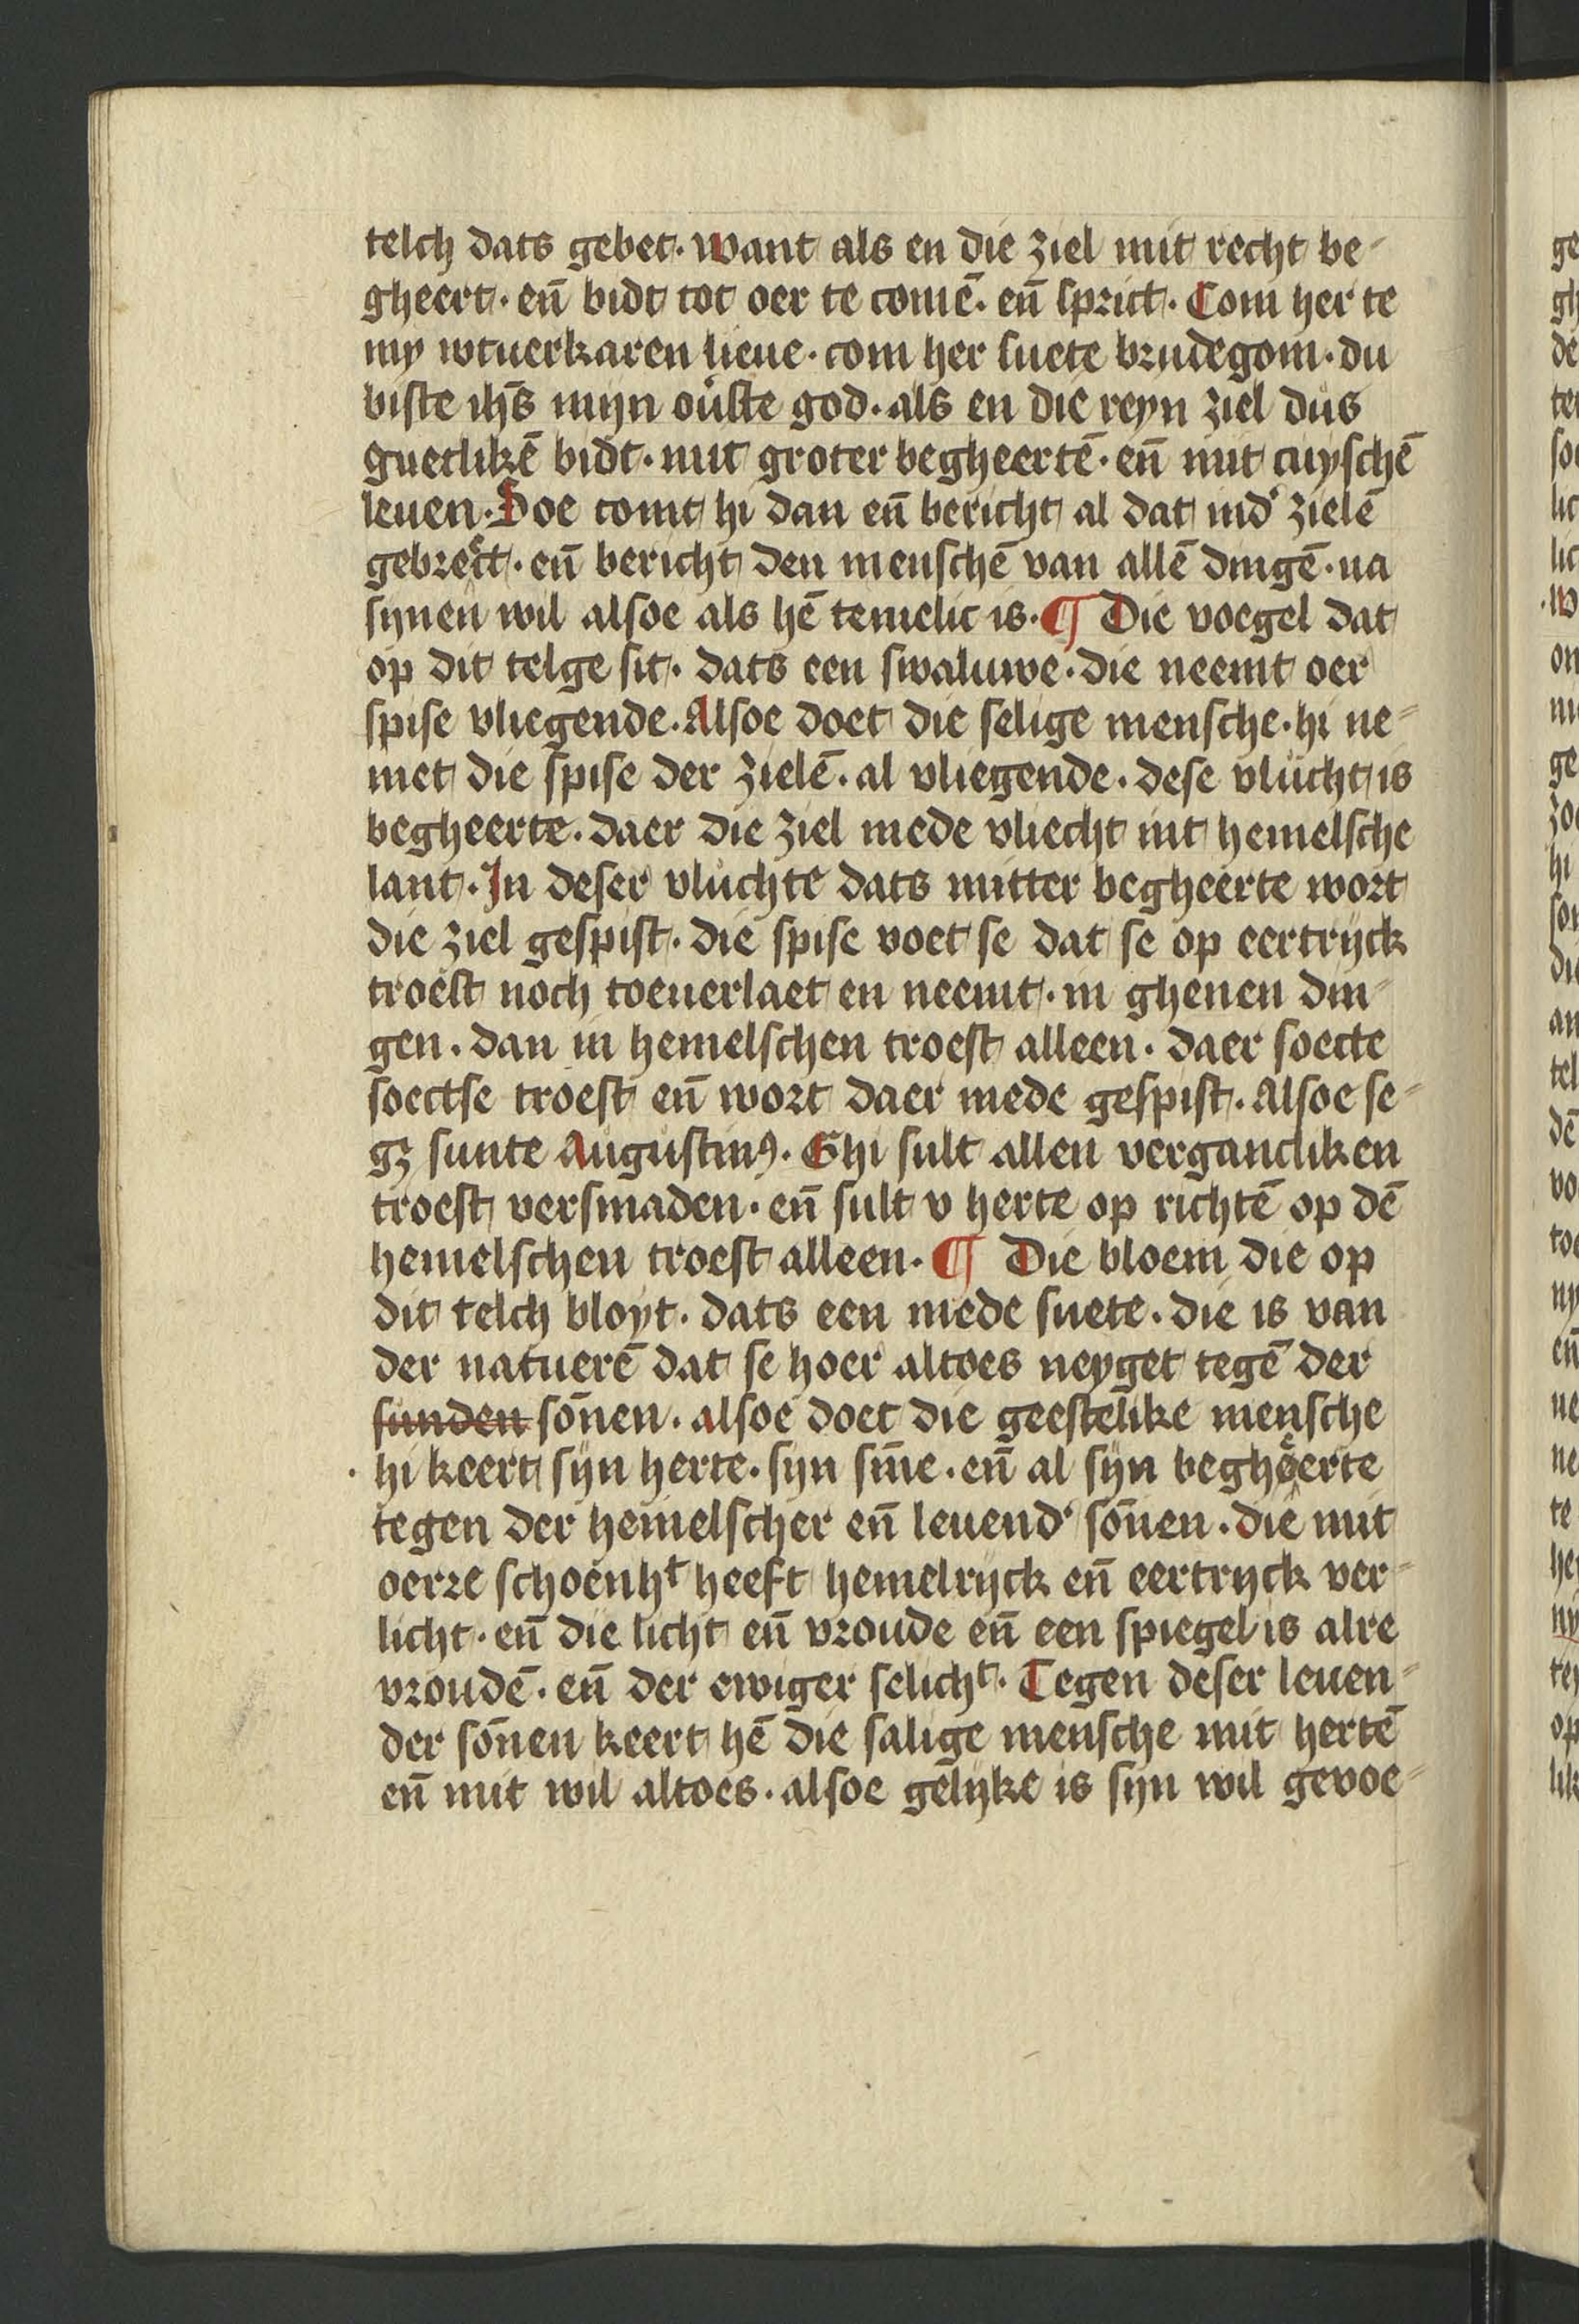 telch dats gebet. Want als en die ziel mit recht be-
gheert. en̄ bidt tot oer te comē. en̄ sprict. Com her te
my wtuerkaren lieue. com her suete brudegom. du
biste ihs̄ mijn ou̇ste god. als en die reyn ziel dus
guetlikē bidt. mit groter begheertē. en̄ mit cuyschē
leuen. Doe comt hi dan en̄ bericht al dat ind' zielē
gebrect. en̄ bericht den menschē van allē dingē. na
synen wil alsoe als hē temelic is. ¶ Die voegel dat
op dit telge sit. dats een swaluwe. die neemt oer
spise vliegende. Alsoe doet die selige mensche. hi ne-
met die spise der zielē. al vliegende. dese vlucht is
begheerte. daer die ziel mede vliecht int hemelsche
lant. In deser vluchte dats mitter begheerte wort
die ziel gespist. die spise voet se dat se op eertrijck
troest noch toeuerlaet en neemt. in ghenen din-
gen. dan in hemelschen troest alleen. daer soecte
soectse troest en̄ wort daer mede gespist. Alsoe se-
gꝫ sunte Augustinꝰ. Ghi sult allen vergancliken
troest versmaden. en̄ sult v herte op richtē op dē
hemelschen troest alleen. ¶ Die bloem die op
dit telch bloyt. dats een mede suete. die is van
der natuerē dat se hoer altoes neyget tegē der
sunden sōnen. alsoe doet die geestelike mensche
hi keert syn herte. syn sīne. en̄ al syn begheerte
tegen der hemelscher en̄ leuend' sōnen. die mit
oerre schoenhᵗ heeft hemelrijck en̄ eertrijck ver-
licht. en̄ die licht en̄ vroude en̄ een spiegel is alre
vroudē. en̄ der ewiger selichᵗ. Tegen deser leuen-
der sōnen keert hē die salige mensche mit hertē
en̄ mit wil altoes. alsoe gelyke is syn wil gevoe-